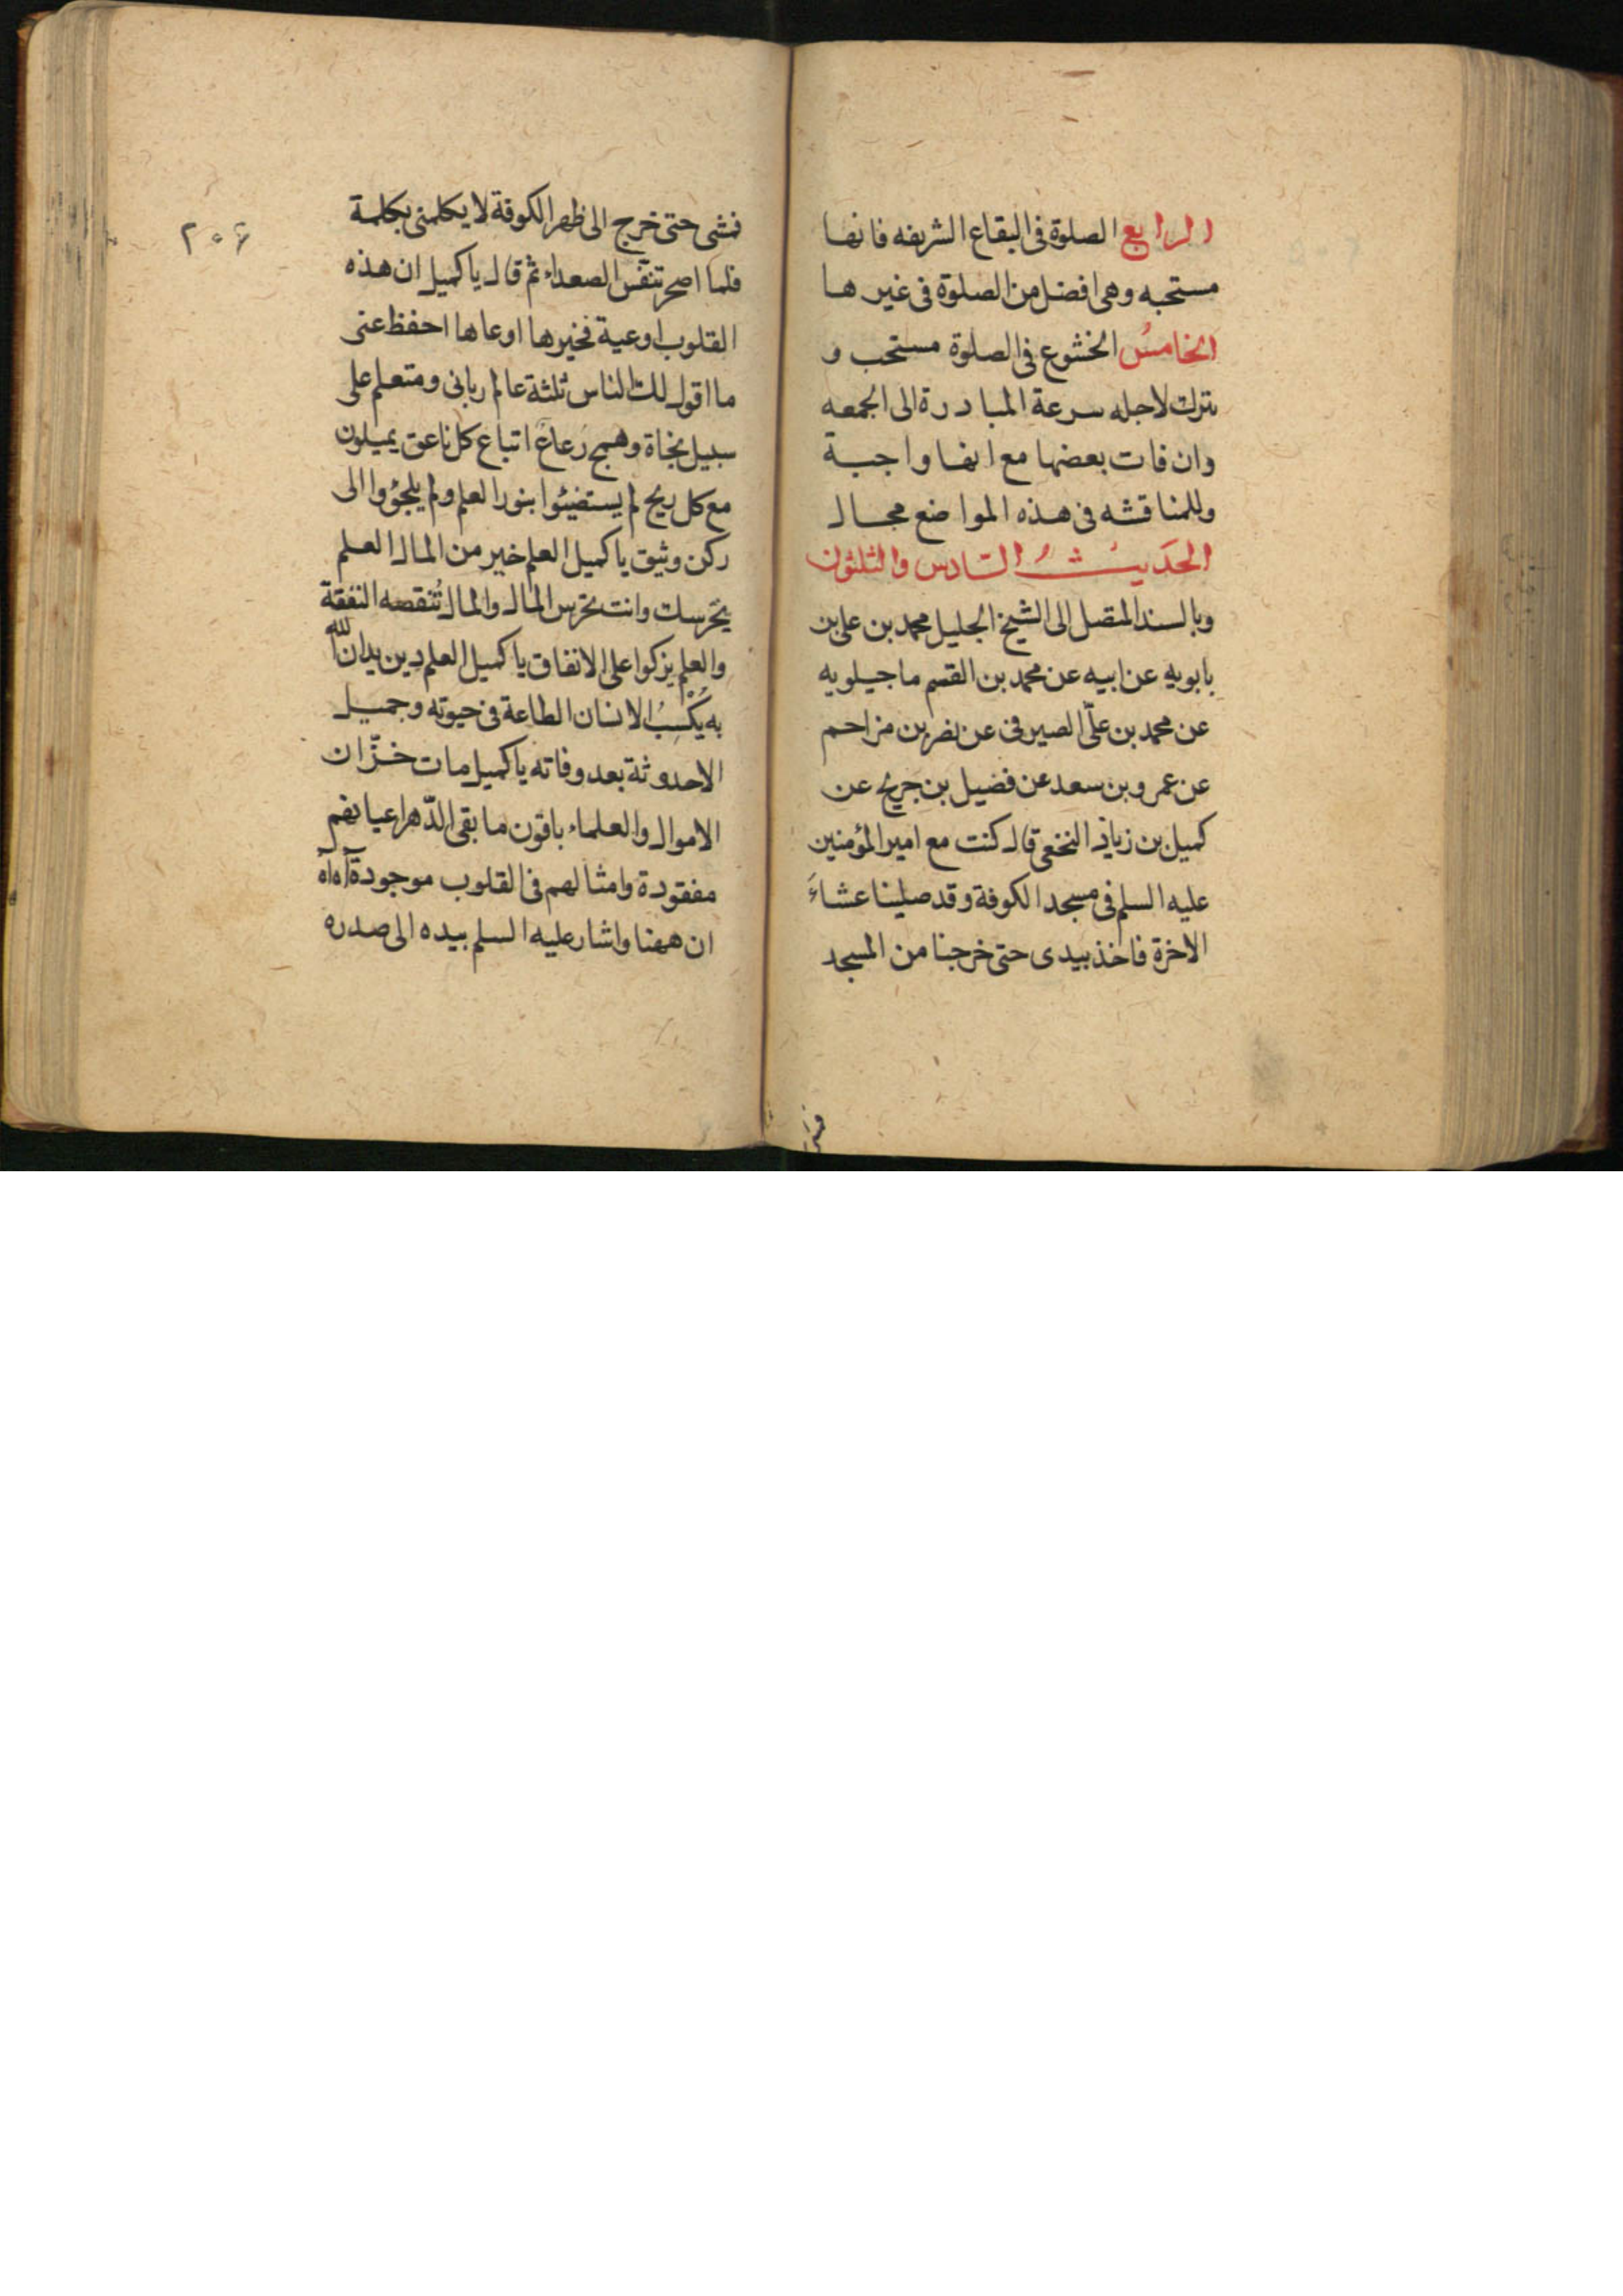 الرابع الصلوة فى البقاع الشريفه فانها
مستحبه وهى افضل من الصلوة فى غيرها
الخامسُ الخشوع فى الصلوة مستحب و
يترك لاجله سرعة المبادرة الى الجمعه
وان فات بعضها مع انها واجبة
وللمناقشه فى هذه المواضع مجال
الحَديثُ السّادس والثلثون
وبالسند المتصل الى الشيخ الجليل محمد بن على بن
بابويه عن ابيه عن محمد بن القسم ماجيلويه
عن محمد بن علىّ الصيرفى عن نصر بن مزاحم
عن عمرو بن سعد عن فضيل بن جريح عن
كميل بن زياد النخعى قال كنت مع امير المؤمنين
عليه السلم فى مسجد الكوفة وقد صلينا عشاءَ
الاخرة فاخذ بيدى حتى خرجنا من المسجد
فمشى
٢٠۶
فمشى حتى خرج الى ظهر الكوفة لا يكلمنى بكلمة
فلما اصحر تنفّس الصعداء ثم قال يا كميل ان هذه
القلوب اوعية فخيرها اوعاها احفظ عنى
ما اقول لك الناس ثلثة عالم ربانى ومتعلم على
سبيل نجاة وهمج رعاع اتباع كل ناعق يميلون
مع كل ريح لم يستضيئوا بنور العلم ولم يلجؤوا الى
ركن وثيق يا كميل العلم خير من المال العلم
يَحْرسك وانت تحرس المال والمال تُنقصه النفقة
والعلم يزكوا على الانفاق يا كميل العلم دين يدان الله
به يُكْسِبُ الانسان الطاعة فى حيوته وجميل
الاحدوثة بعد وفاته يا كميل مات خزّان
الاموال والعلماء باقون ما بقى الدّهر اعيانهم
مفقودة وامثالهم فى القلوب موجودة آه آه
ان ههنا واشار عليه السلم بيده الى صدره